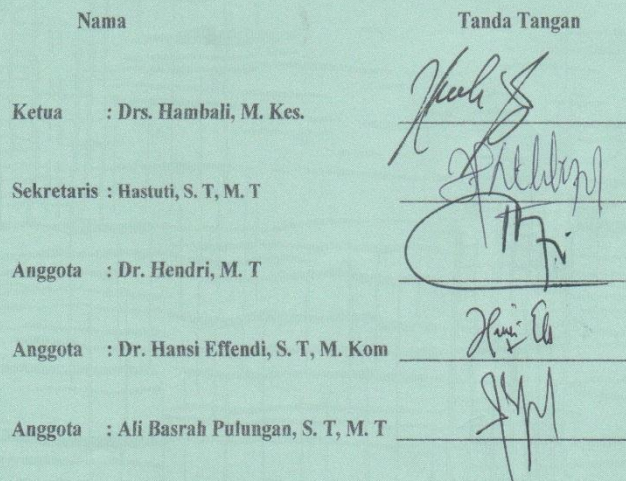 Nama Tanda Tangan
Ketua : Drs. Hambali, M. Kes.
Sekretaris : Hastuti, S. T, M. T
Anggota : Dr. Hendri, M. T
Anggota : Dr. Hansi Effendi, S. T, M. Kom
Anggota : Ali Basrah Pulungan, S. T, M. T